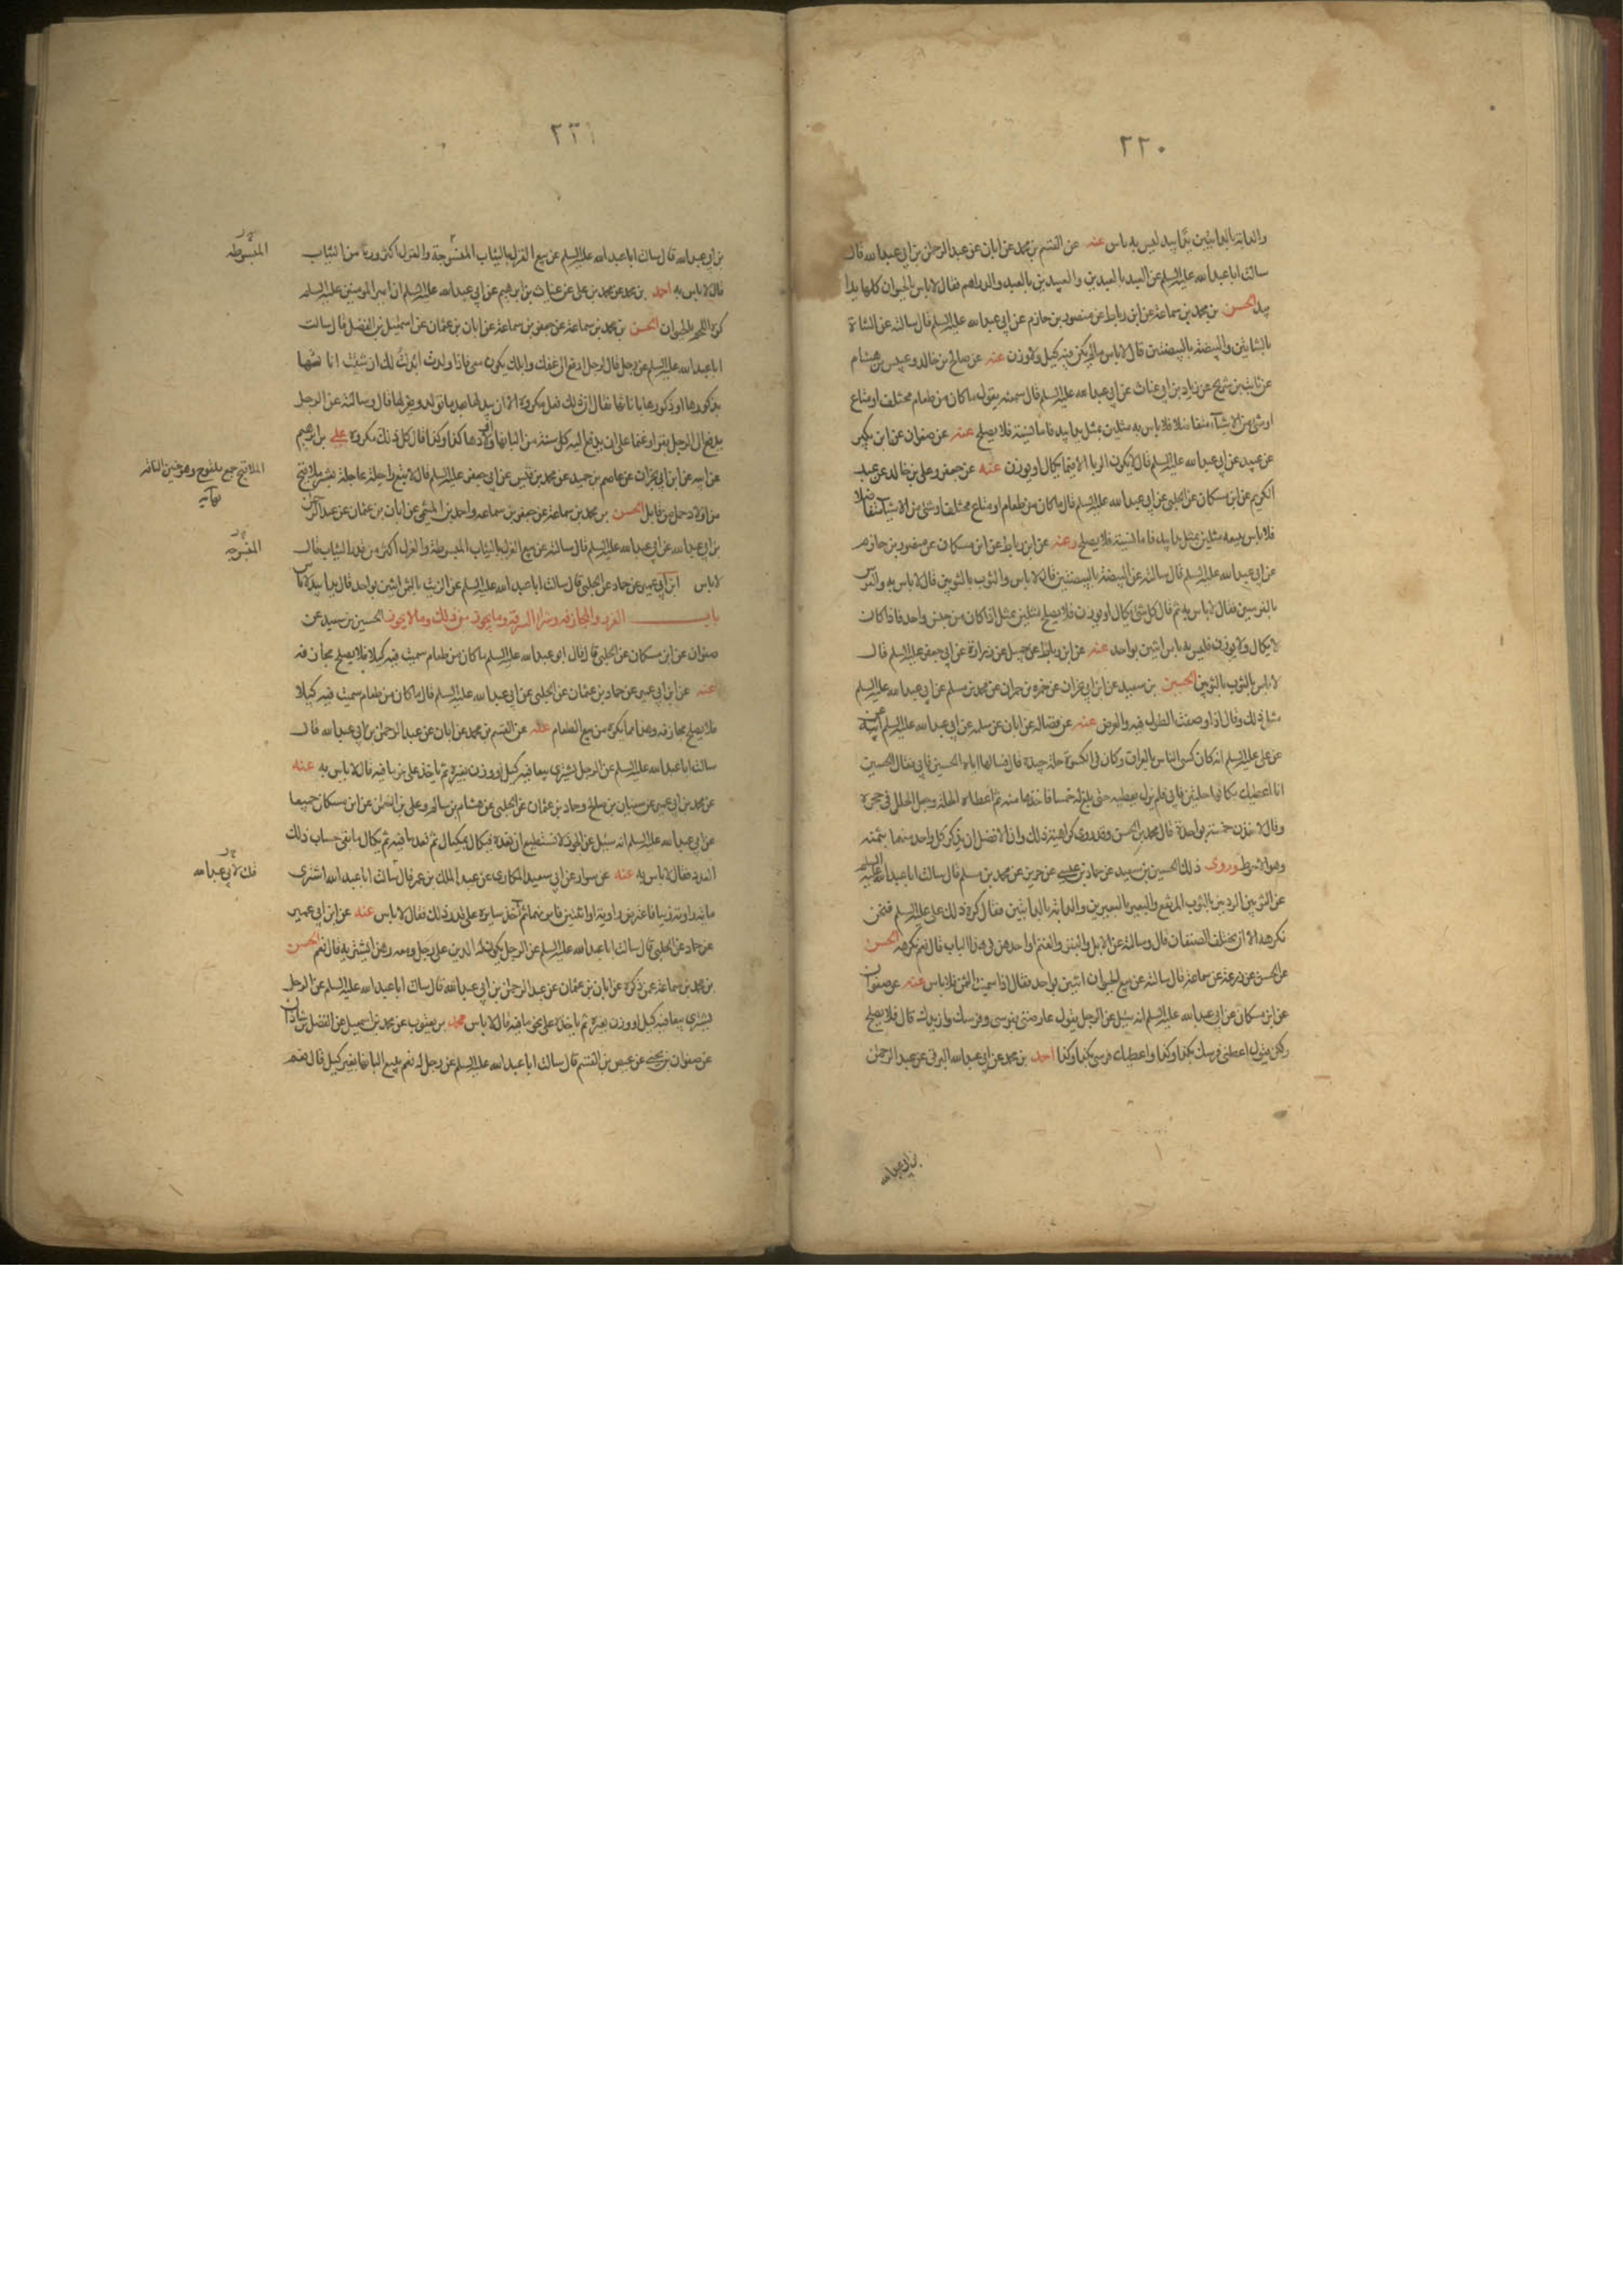 ٢٢٠
والدابة بالدابتين يدا بيد ليس به باس عنه عن القسم بن محمد عن ابان عن عبد الرحمن بن ابي عبد الله قال
سالت ابا عبد الله عليه السلم عن العبد بالعبدين والعبد بن بالعبد والدراهم فقال لا باس بالحيوان كلها يدا
بيد الحسن بن محمد بن سماعة عن ابن رباط عن منصور بن حازم عن ابي عبد الله عليه السلم قال سالته عن الشاة
بالشاتين والبيضة بالبيضتين قال لا باس مالم يكن فيه كيل ولا وزن عنه عن صالح بن خالد وعبيس بن هشام
عن ثابت بن شريح عن زياد بن ابي غياث عن ابي عبد الله عليه السلم قال سمعته يقول ما كان من طعام مختلف او متاع
او شئ من الاشياء متفاضلا فلا باس به مثلين بمثل يدا بيد فاما نسية فلا يصلح عنه عن صفوان عن ابن بكير
عن عبيد عن ابي عبد الله عليه السلم قال لا يكون الربا الا فيما يكال او يوزن عنه عن جعفر وعلي بن خالد عن عبد
الكريم عن ابن مسكان عن الحلبي عن ابي عبد الله عليه السلم قال ما كان من طعام او متاع مختلف او شئ من الاشياء متفاضلا
فلا باس ببيعه مثلين بمثل يدا بيد فاما نسية فلا يصلح وعنه عن ابن رباط عن ابن مسكان عن منصور بن حازم
عن ابي عبد الله عليه السلم قال سالته عن البيضة بالبيضتين قال لا باس والثوب بالثوبين قال لا باس به والفرس
بالفرسين فقال لا باس به ثم قال كل شئ يكال او يوزن فلا يصلح مثلين بمثل اذا كان من جنس واحد فاذا كان
لا يكال ولا يوزن فليس به باس اثنين بواحد عنه عن ابن رباط عن جميل عن زرارة عن ابي جعفر عليه السلم قال
لا باس بالثوب بالثوبين الحسين بن سعيد عن ابن ابي نجران عن حمزة بن حمران عن محمد بن مسلم عن ابي عبد الله عليه السلم
مثل ذلك وقال اذا وصفت الطول فيه والعرض عنه عن فضالة عن ابان عن سلمه عن ابي عبد الله عليه السلم عن ابيه
عن علي عليه السلم انه كان كسى الناس بالعراق وكان في الكسوة حلة جيدة قال فسالها اياه الحسين فابى فقال الحسين
انا اعطيك مكانها حلتين فابى فلم يزل يعطيه حتى بلغ له خمسا فاخذها منه ثم اعطاه الحلة وجعل الحلل في حجره
وقال لاخذن خمسة بواحدة قال محمد بن الحسن وقد روى كراهية ذلك واذا الافضل ان يذكر كل واحد منهما بثمنه
وهو الاحوط وروى ذلك الحسين بن سعيد عن حماد بن عيسى عن حريز عن محمد بن مسلم قال سالت ابا عبد الله عليه السلم
عن الثوبين الرديين بالثوب المرتفع والبعير بالبعيرين والدابة بالدابتين فقال كره ذلك علي عليه السلم فنحن
نكرهه الا ان يختلف الصنفان قال وسالته عن الابل والبقر والغنم او احدهن في هذا الباب قال نعم نكرهه الحسن
عن الحسن عن زرعة عن سماعة قال سالته عن بيع الحيوان اثنين بواحد فقال اذا سميت الثمن فلا باس عنه عن صفوان
عن ابن مسكان عن ابي عبد الله عليه السلم انه سئل عن الرجل يقول عاوضني بفرسي وفرسك وازيدك قال فلا يصلح
ولكن يقول اعطني فرسك بكذا وكذا واعطيك فرسي بكذا وكذا احمد بن محمد عن ابي عبد الله البرقي عن عبد الرحمن
بن ابي عبد الله
٢٢١
بن ابي عبد الله قال سالت ابا عبد الله عليه السلم عن بيع الغزل بالثياب المنسوجة والغزل اكثر وزنا من الثياب
قال لا باس به احمد بن محمد عن محمد بن علي عن غياث بن ابرهيم عن ابي عبد الله عليه السلم ان امير المومنين عليه السلم
كره اللحم بالحيوان الحسن بن محمد بن سماعة عن جعفر بن سماعة عن ابان بن عثمان عن اسمعيل بن الفضل قال سالت
ابا عبد الله عليه السلم عن رجل قال لرجل ادفع الى غنمك وابلك يكون معي فاذا ولدت ابدلت لك ان شئت اناثها
بذكورها او ذكورها باناثها فقال ان ذلك فعل مكروه الا ان يبدلها بعد ما تولد ويعزلها قال وسالته عن الرجل
يدفع الى الرجل بقرا او غنما على ان يدفع اليه كل سنة من البانها واولادها كذا وكذا قال كل ذلك مكروه علي بن ابرهيم
عن ابيه عن ابن ابي نجران عن عاصم بن حميد عن محمد بن قيس عن ابي جعفر عليه السلم قال لا تبع راحلة عاجلة بعشر ملاقيح
من اولاد جمل من قابل الحسن بن محمد بن سماعة عن جعفر بن سماعه واحمد بن الميثمي عن ابان بن عثمان عن عبد الرحمن
بن ابي عبد الله عن ابي عبد الله عليه السلم قال سالته عن بيع الغزل بالثياب المبسوطة والغزل اكثر من قدر الثياب قال
لا باس ابن ابي عمير عن حماد عن الحلبي قال سالت ابا عبد الله عليه السلم عن الزيت بالثمر اثنين بواحد قال يدا بيد لا باس
باب الغرر والمجازفة وشراء السرقة وما يجوز من ذلك وما لا يجوز الحسين بن سعيد عن
صفوان عن ابن مسكان عن الحلبي قال قال ابو عبد الله عليه السلم ما كان من طعام سميت فيه كيلا فلا يصلح مجازفه
عنه عن ابن ابي عمير عن حماد بن عثمان عن الحلبي عن ابي عبد الله عليه السلم قال ما كان من طعام سميت فيه كيلا
فلا يصلح مجازفه وهذا مما يكره من بيع الطعام عنه عن القسم بن محمد عن ابان عن عبد الرحمن بن ابي عبد الله قال
سالت ابا عبد الله عليه السلم عن الرجل يشتري بيعا فيه كيل او وزن بغيره ثم ياخذ على نحو ما فيه قال لا باس به عنه
عن محمد بن ابي عمير عن سفيان بن صالح وحماد بن عثمان عن الحلبي عن هشام بن سالم وعلي بن النعمن عن ابن مسكان جميعا
عن ابي عبد الله عليه السلم انه سئل عن الجوز لا نستطيع ان نعده فيكال بمكيال ثم نعد ما فيه ثم يكال ما بقى حساب ذلك
العدد فقال لا باس به عنه عن سواد عن ابي سعيد المكاري عن عبد الملك بن عمر قال سالت ابا عبد الله اشترى
ماية راوية زيتا فاعترض راوية او اثنتين فاتزنهما ثم آخذ سايره على قدر ذلك فقال لا باس عنه عن ابن ابي عمير
عن حماد عن الحلبي قال سالت ابا عبد الله عليه السلم عن الرجل يكون له الدين على رجل ومعه رهن ايشتريه قال نعم الحسن
بن محمد بن سماعة عمن ذكره عن ابان بن عثمان عن عبد الرحمن بن ابي عبد الله قال سالت ابا عبد الله عليه السلم عن الرجل
يشتري بيعا فيه كيل او وزن بغيره ثم ياخذه على نحو ما فيه قال لا باس محمد بن يعقوب عن محمد بن اسمعيل عن الفضل بن شاذان
عن صفوان بن يحيى عن عيص بن القسم قال سالت ابا عبد الله عليه السلم عن رجل له نعم يبيع البانها بغير كيل قال نعم
المبسوطه
الملاقيح جمع ملقوح وهو جنين الناقه
نهايه
المنسوجه
قلت لابي عبد الله